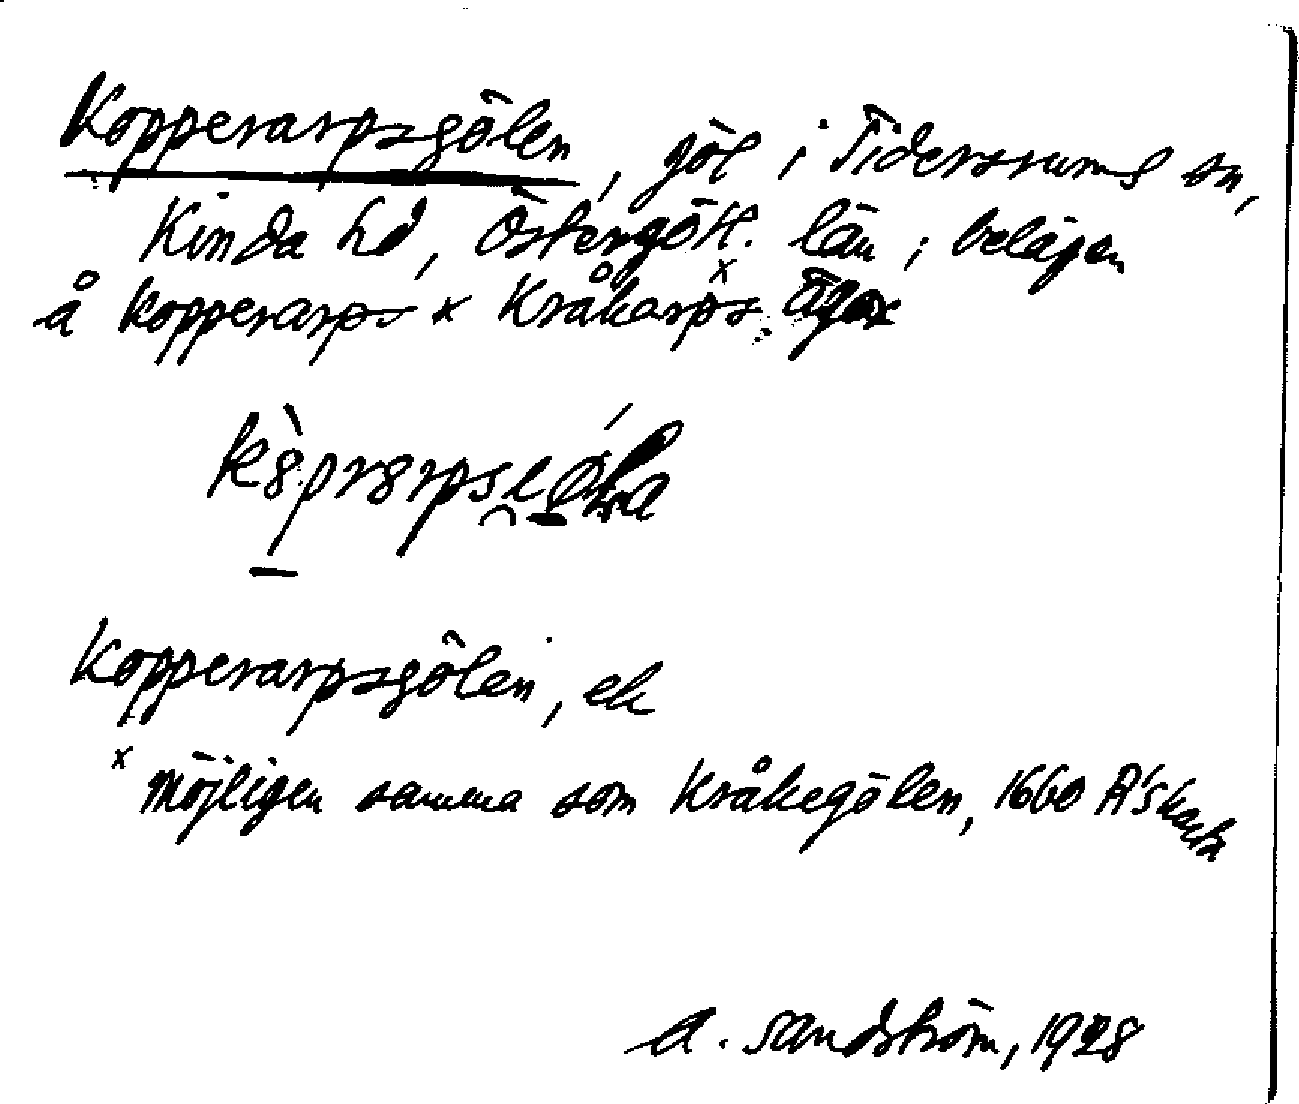 Kopperarpsgölen, göl i Tidersrums sn,
Kinda hd, Östergötl. län; belägen
å Kopperarps x Kråkarps x ägor
Kopperarpsgölen, ek
x Möjligen samma som Kråkegölen, 1660 A1 Skarta
A. Sandström, 1928